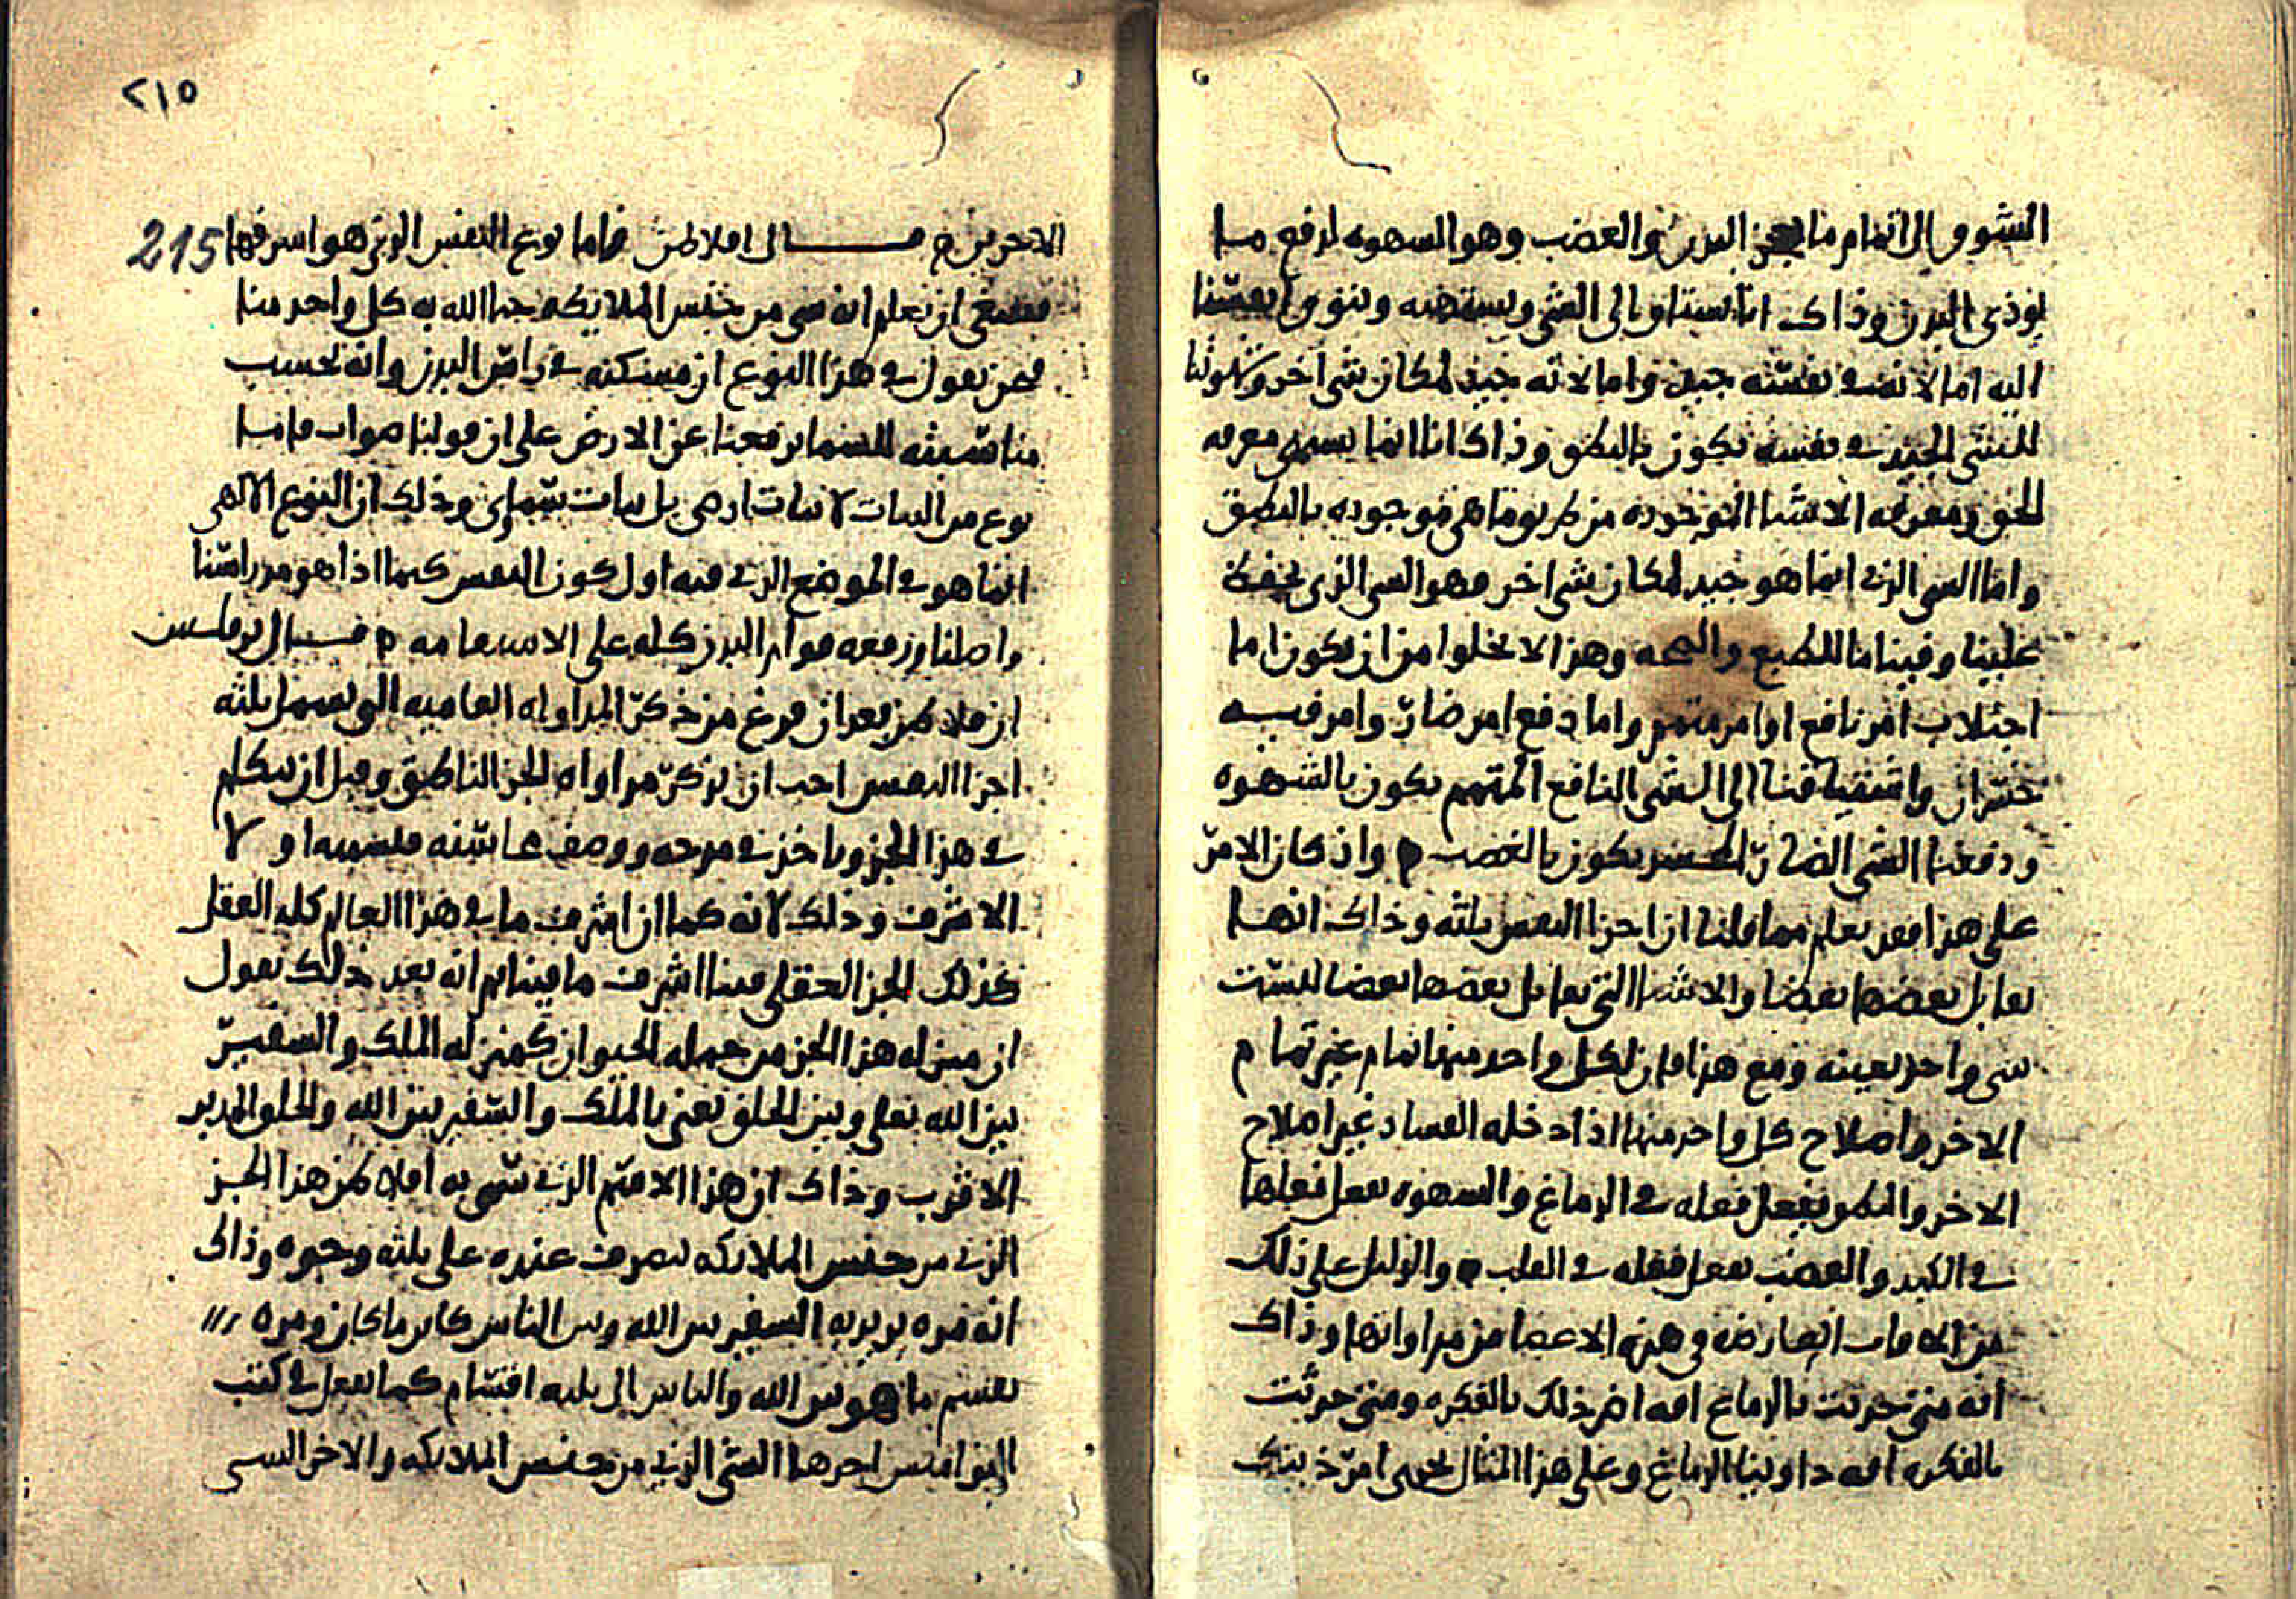 الشوق الى اتمام ما البدن والغضب وهو الشهوه لدفع ما
يوذي البدن وذاك انا نستاق الى الشي ونستهيه وتتوق انفسنا
اليه اما لانه في نفسه جيد واما لانه جيد لمكان شي اخر وشوقنا
للشي الجيد في نفسه يكون بالنطق وذاك انا انما نسمي معرفه
الحق ومعرفه الاشيا الموجوده من طريق ما هي موجوده بالنطق
واما الشي الذي انما هو جيد لمكان شي اخر فهو الشي الذي يحفظ
علينا وفينا ما للطبع والصحه وهذا لا يخلوا من ان يكون اما
اجتلاب امر نافع او امر متمم واما دفع امر ضار وامر فيه
خسران واشتياقنا الى الشي النافع المتمم يكون بالشهوه
ودفعنا الشي الضار المخسر يكون بالغضب ه واذ كان الامر
على هذا فقد نعلم مما قلنا ان اجزا النفس ثلثه وذاك انها
يقابل بعضها بعضا والاشيا التي يقابل بعضها بعضا ليست
شي واحد بعينه ومع هذا فان لكل واحد منها تمام غير تمام
الاخر واصلاح كل واحد منها اذا دخله الفساد غير اصلاح
الاخر والنطق يفعل فعله في الدماغ والشهوه تفعل فعلها
في الكبد والغضب يفعل فعله في القلب ه والدليل على ذلك
من الافات العارضه في هذه الاعضا من مداواتها وذاك
انه متى حدثت بالدماغ افه اضر ذلك بالفكره ومتى حدثت
بالفكره افه داوينا الدماغ وعلى هذا المثال يجري امر ذينك
٢١٥
215
الاخرين ه قال افلاطن فاما نوع النفس الذي هو اشرفها
فينبغي ان نعلم انه شي من جنس الملايكه حبا الله به كل واحد منا
فنحن نقول في هذا النوع ان مسكنه في راس البدن وانه بحسب
مناسبته للسما يرفعنا عن الارض على ان قولنا صواب فانا
نوع من النبات لا نبات ارضي بل نبات سماي وذلك ان النوع الالهي
انما هو في الموضع الذي منه اول كون النفس كما اذا هو من راسنا
واصلنا ورفعه قوام البدن كله على الاستقامه ه قال برقلس
ان فلاطن بعد ان فرغ من ذكر المداواه العاميه التي تعم ثلثه
اجزا النفس احب ان يذكر مداواه الجز الناطق وقبل ان يتكلم
في هذا الجز وياخذ في مدحه ووصف محاسنه فلنسمه اولا
الاشرف وذلك لانه كما ان اشرف ما في هذا العالم كله العقل
كذلك الجز العقلي فينا اشرف ما فينا ثم انه بعد ذلك نقول
ان منزله هذا الجز من جمله الحيوان كمنزله الملك والسفير
بين الله تعلى وبين الخلق نعني بالملك والسفير بين الله والخلق المدبر
الاقرب وذاك ان هذا الاسم الذي سمى به افلاطن هذا الجز
الذي من جنس الملايكه تصرف عنده على ثلثه وجوه وذاك
انه مره يريد به السفير بين الله وبين الناس كاين ما كان ومره
يقسم ما هو بين الله والناس الى ثلثه اقسام كما يفعل في كتب
النواميس احدها الشي الذي من جنس الملايكه والاخر الشي